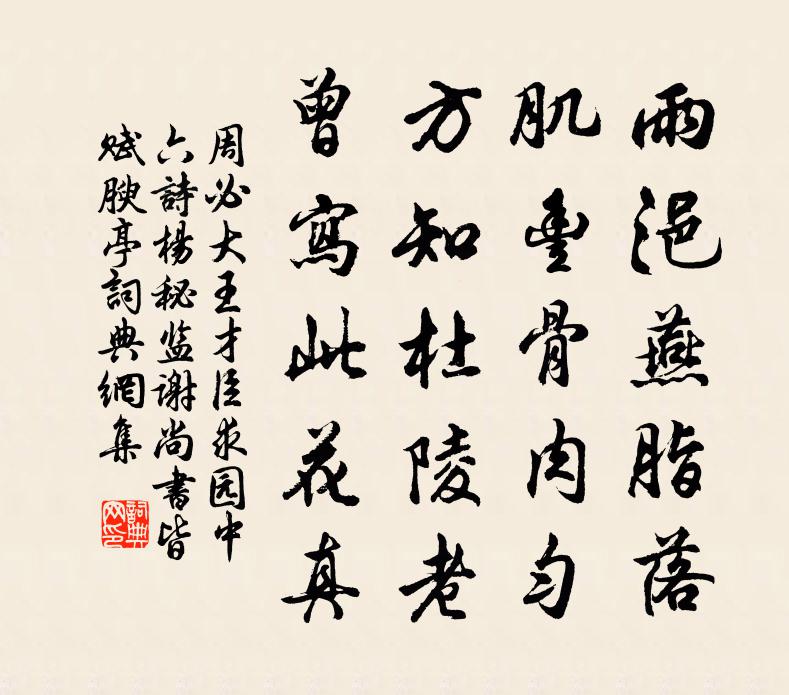 雨浥燕脂落
肌豊骨肉匀
方知杜陵老
曾寫此花真
周必大王才臣求园中
六詩楊秘监谢尚書皆
赋腴亭詞典網集
詞典网印